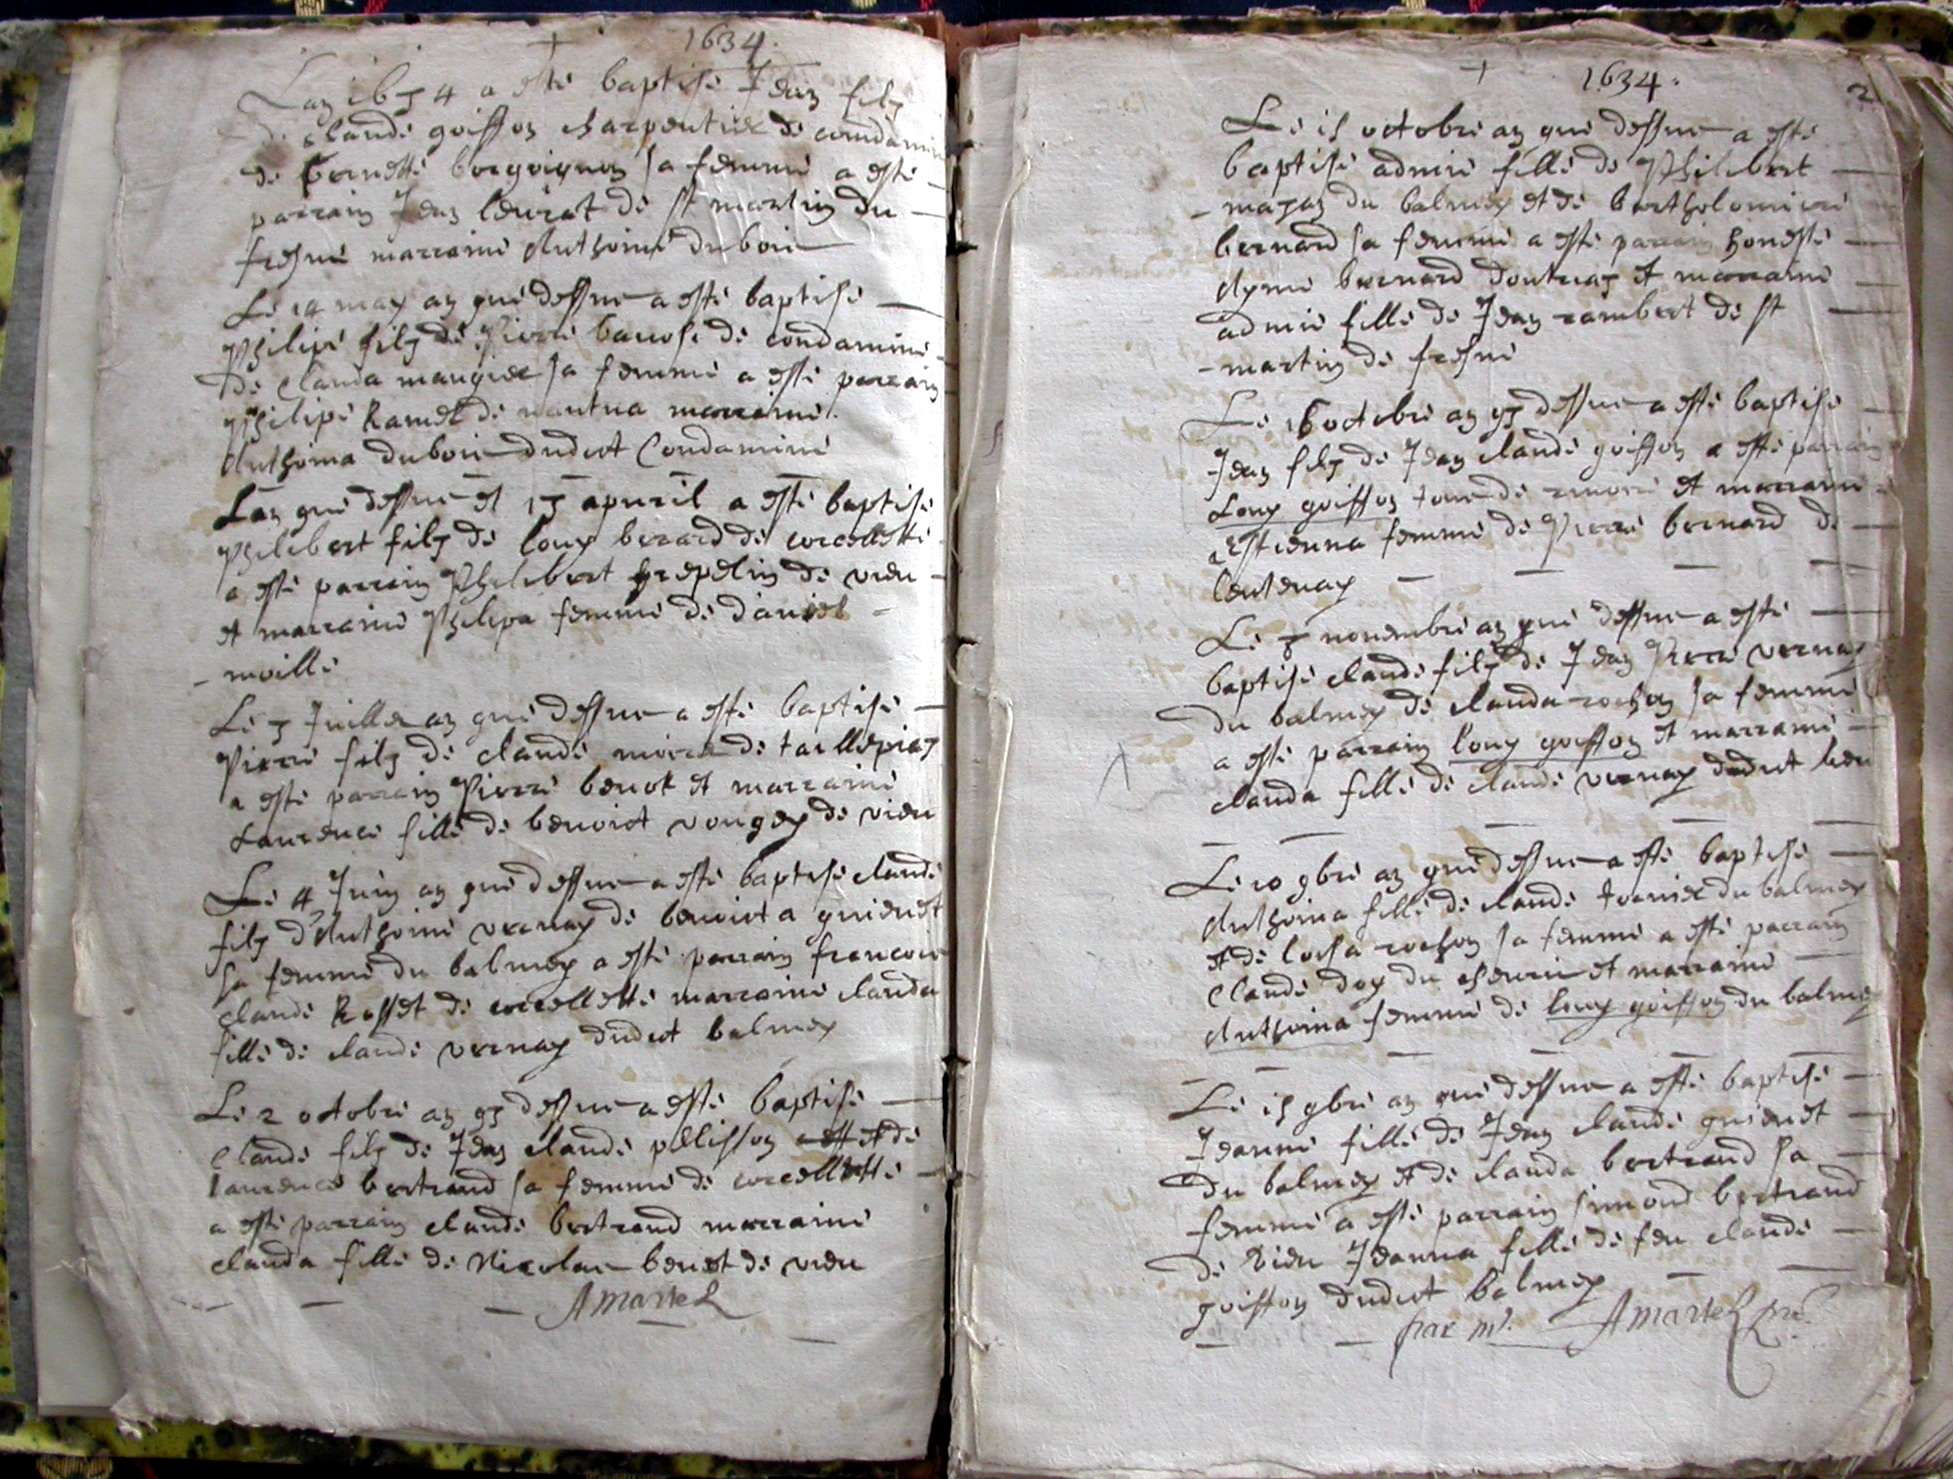 1634.
Lan 16 4 a esté baptisé Jean filz
de claude goiffon charpentier de condamine
de bernesté borgoignon sa femme a esté
parrain Jean leurat de st martin du
fresne marraine Anthoine du bois
Le 14 may an que dessus a esté baptisé
Philipe filz de Pierre de condamine
de clauda maugier sa femme a esté parrain
Philipe Ramel de nantua marraine
Anthoina dubois dudict Condamine
Lan que dessus et 13 apuril a esté baptisé
Philibert filz de louy berard de corcellette
a esté parrain Philibert grepelin de vieu
et marraine Philipa femme de daniel
moille
Le 3 Juillet an que dessus a esté baptisé
Pierre filz de claude de taillepiaz
a esté parrain Pierre benot et marraine
Laurence fille de benoict vongey de vieu
Le 4 Juin an que dessus a esté baptisé claude
filz d'Anthoine vernay de benoicta guienet
sa femme du balmey a esté parrain francois
claude Rosset de corcellette marraine clauda
fille de claude vernay dudict balmey
Le 2 octobre an q3 dessus a esté baptisé
Claude filz de Jean claude pellisson et de
laurence bertrand sa femme de corcellette
a esté parrain claude bertrand marraine
clauda fille de Nicolas benot de vieu
AMartel
1634.
2
Le 15 octobre an que dessus a esté
baptisé admie fille de Philibert
mazan du balmey et de bartholomiere
bernard sa femme a esté parrain honeste
Ayme bernard doutriaz et marraine
admie fille de Jean rambert de st
martin de fresne
Le 16 octobre an q3 dessus a esté baptisé
Jean filz de Jean claude goiffon a esté parrain
Louy goiffon et marraine
Estienna femme de Pierre bernard de
lentenay
Le 3 novembre an que dessus a esté
baptisé claude filz de Jean Pierre vernay
du balmey de clauda rochon sa femme
a esté parrain louy goiffon et marraine
clauda fille de claude vernay dudict lieu
Le 10 9bre an que dessus a esté baptisé
Anthoina fille de claude du balmey
et de rochon sa femme a esté parrain
Claude doy du et marraine
Anthoina femme de louy goiffon du balmey
Le 15 9bre an que dessus a esté baptisé
Jeanne fille de Jean claude guienet
du balmey et de clauda bertrand sa
femme a esté parrain simond bertrand
de vieu Jeanna fille de feu claude
goiffon dudict balmey
par m. AMartel pre